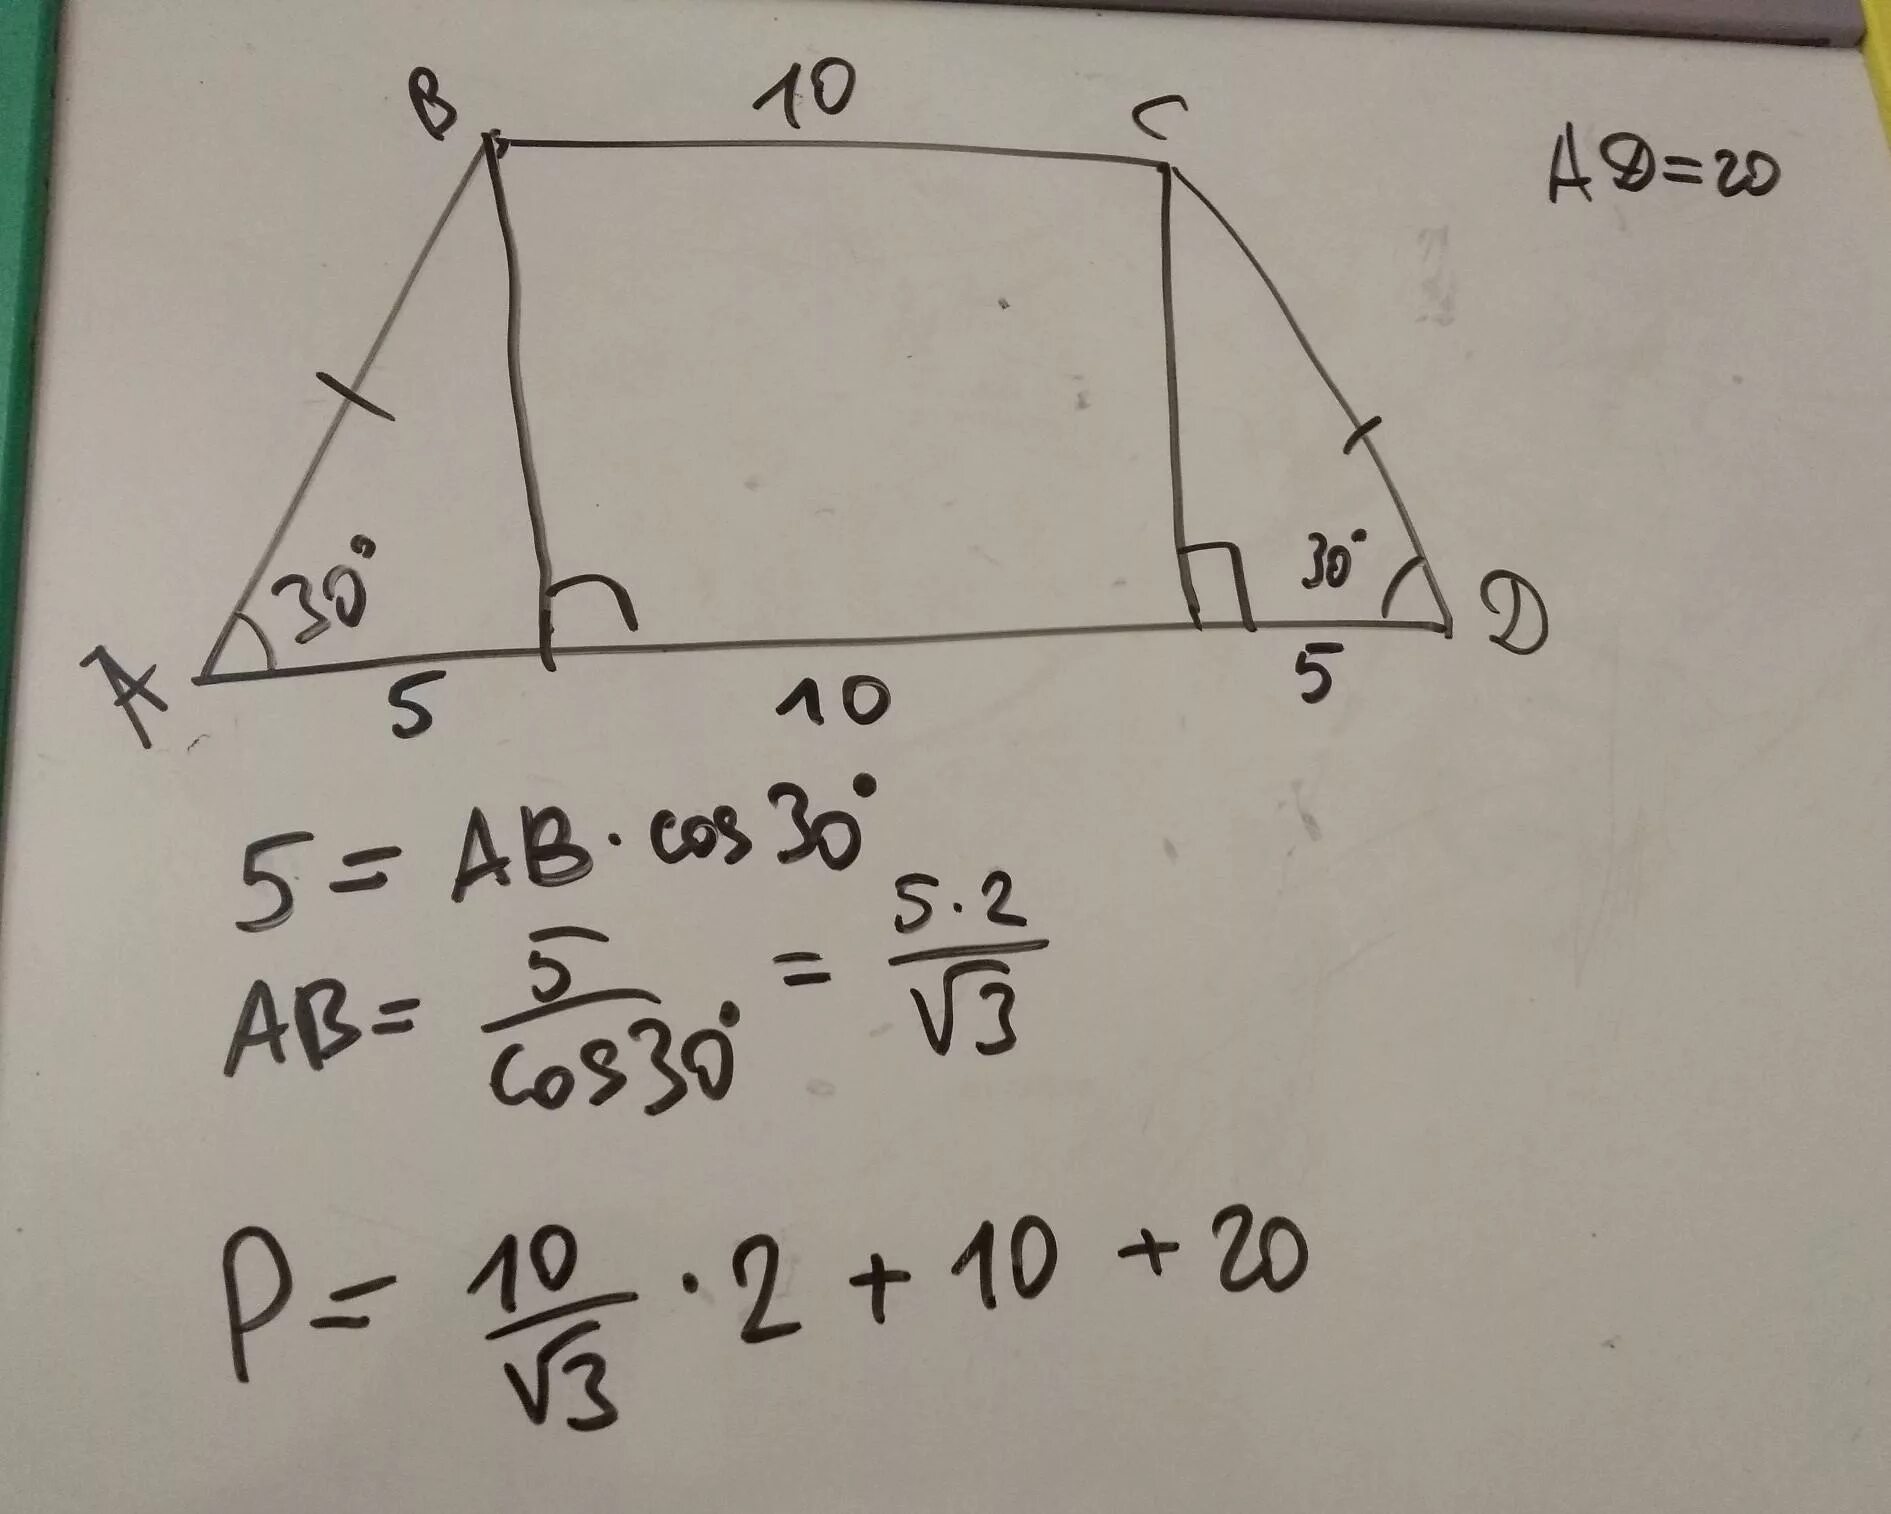 10
B
C
AD=20
30°
30°
A
D
5
10
5
5 = AB · cos30°
AB = 5/cos30° = 5·2/√3
P = 10/√3 · 2 + 10 + 20